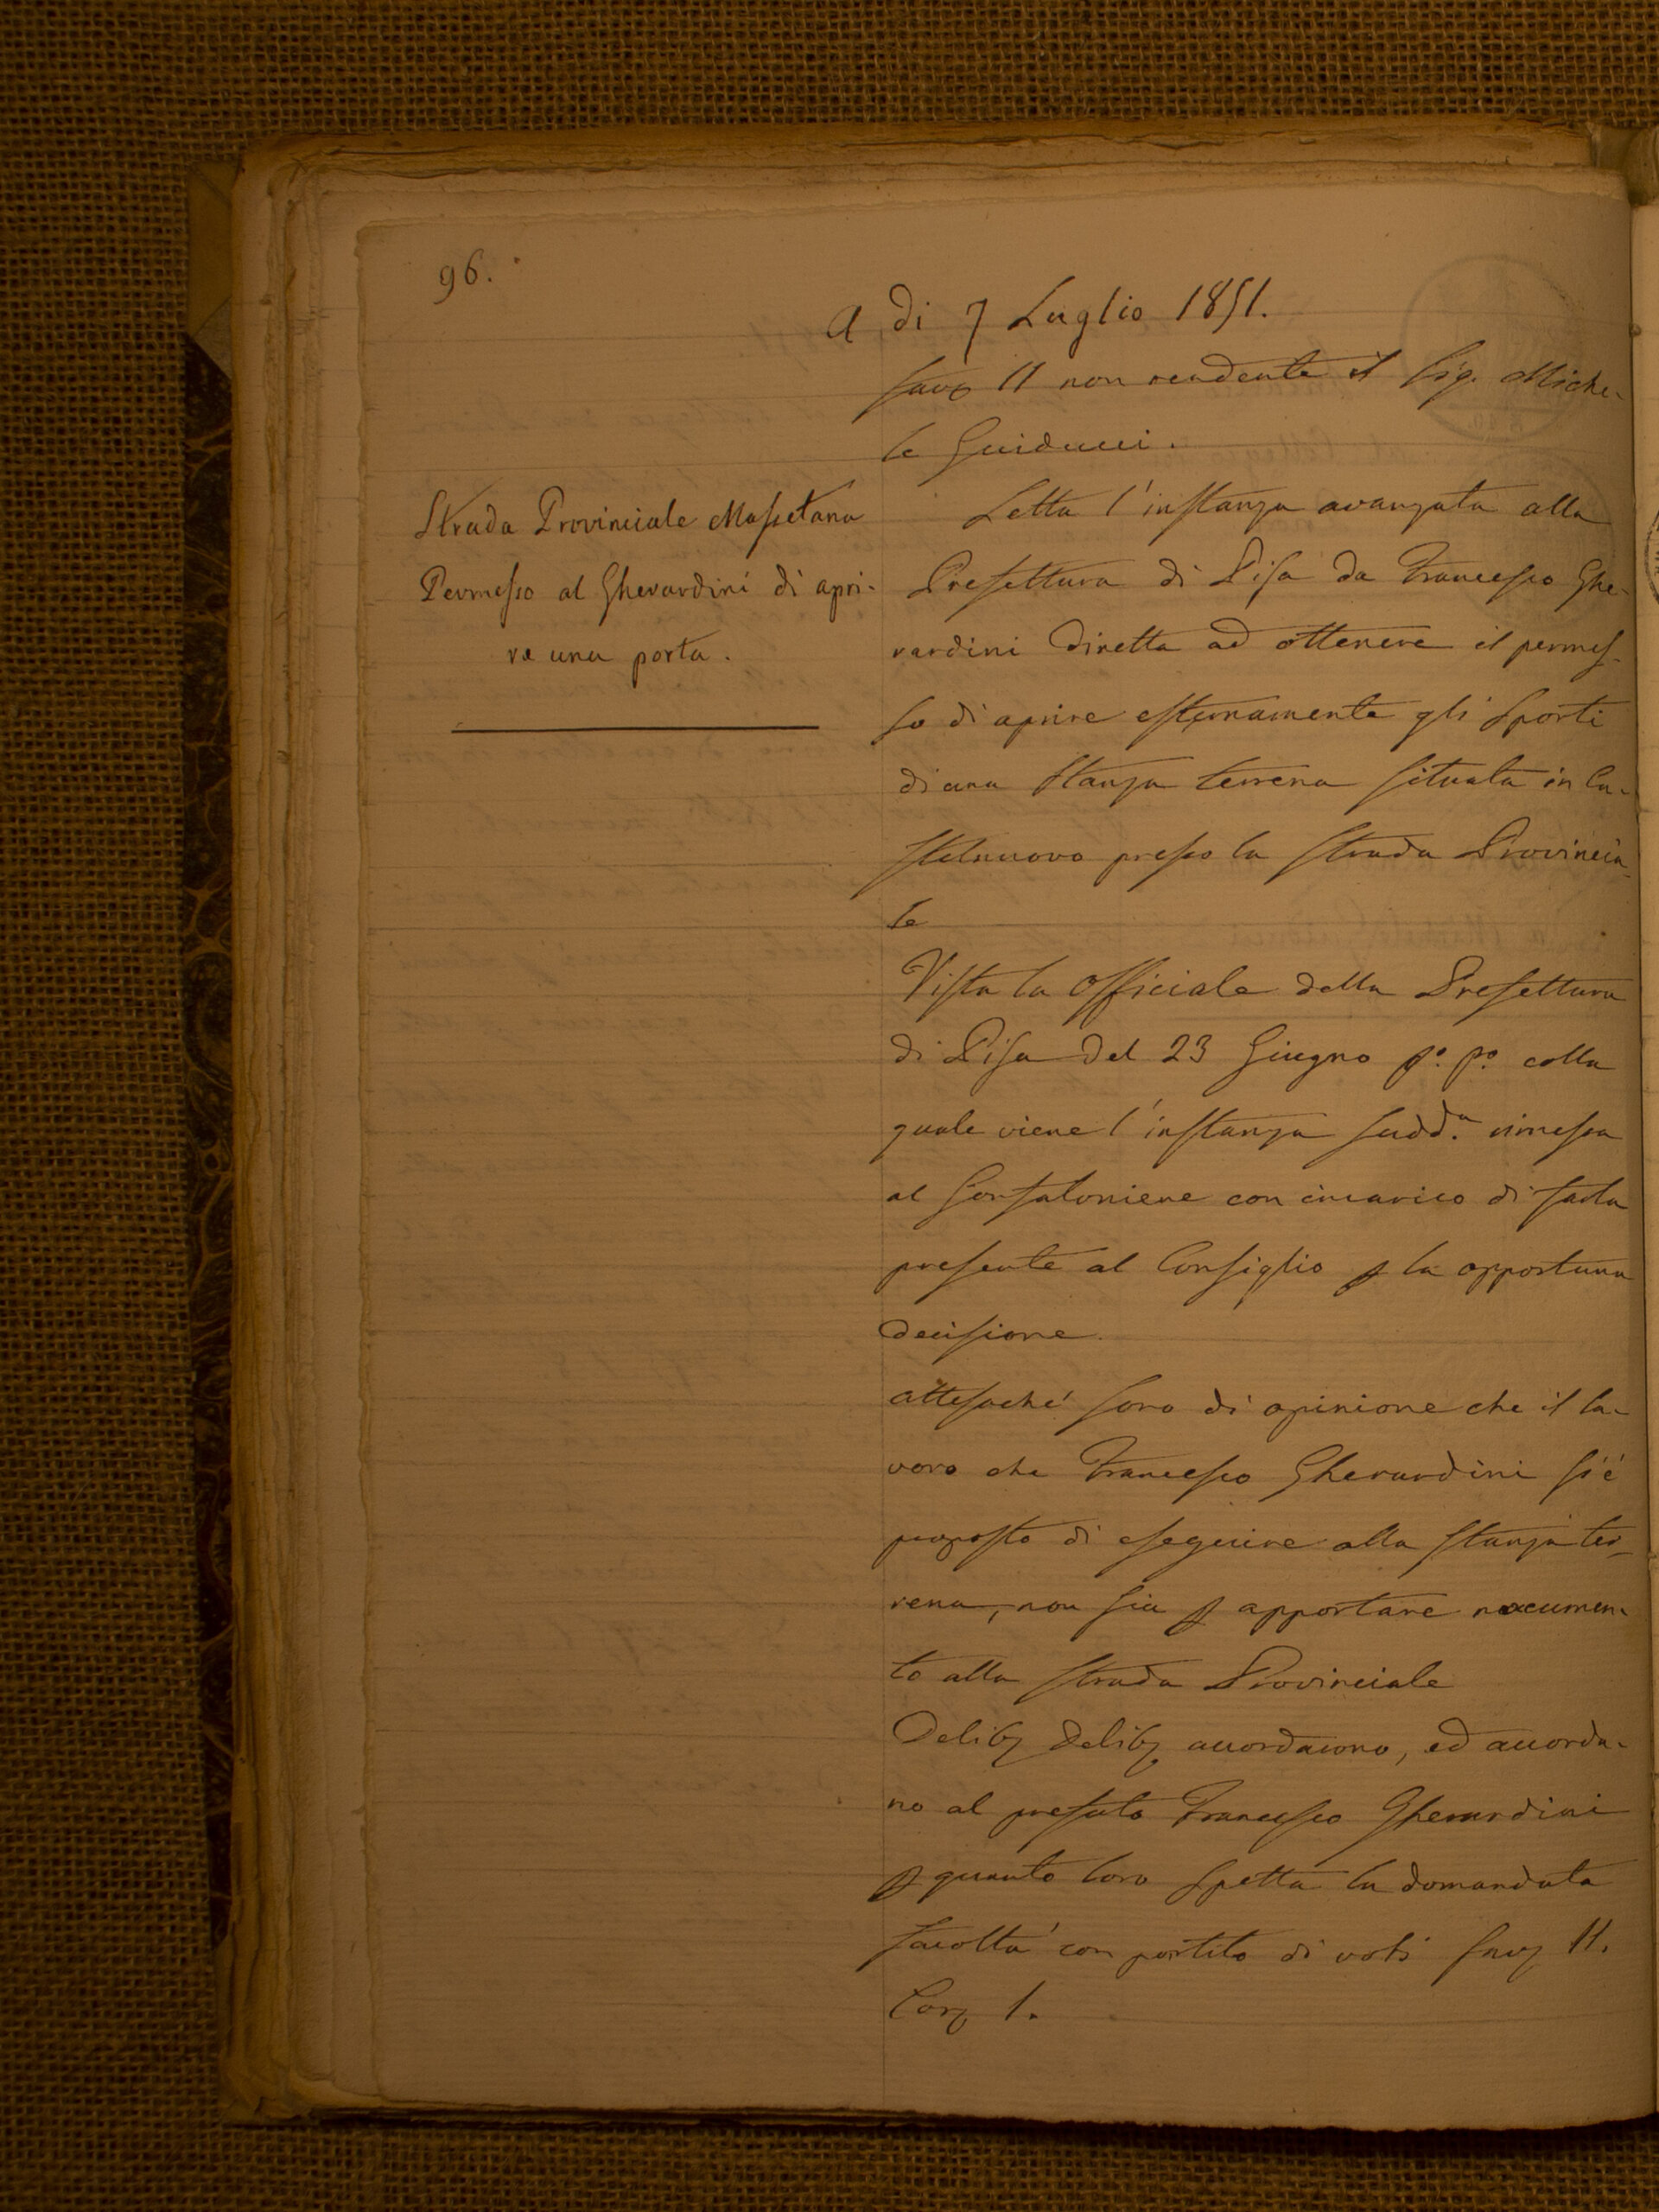 96.
A di 7 Luglio 1851.
favo 11 non rendente il Sig. Miche-
le Guiducci.
Strada Provinciale Massetana
Permesso al Gherardini di apri-
re una porta.
Letta l'instanza avanzata alla
Prefettura di Pisa da Francesco Ghe-
rardini diretta ad ottenere il permes-
so di aprire esternamente gli sporti
di una stanza terrena situata in Ca-
stelnuovo presso la strada Provincia-
le
Vista la Officiale della Prefettura
di Pisa del 23 Giugno p.º p.º colla
quale viene l'instanza sudd.ª rimessa
al Gonfaloniere con incarico di farla
presente al Consiglio p la opportuna
decisione.
attesoché sono di opinione che il la-
voro che Francesco Gherardini si é
proposto di eseguire alla stanza ter-
rena, non sia p apportare nocumen-
to alla strada Provinciale
Delib Delib accordarono, ed accorda-
no al prefato Francesco Gherardini
p quanto loro spetta la domandata
facoltà con partito di voti fav 11.
Con 1.